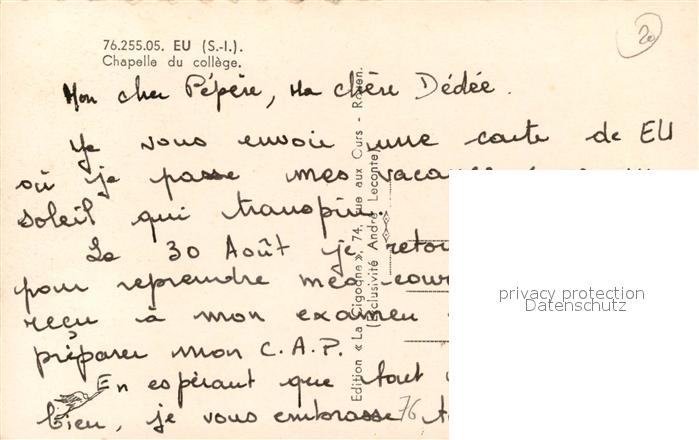 76.255.05. EU (S.-I.).
Chapelle du collège.
20
Mon cher Pépère, Ma chère Dédée.
Je vous envoie une carte de EU
où je passe mes
soleil qui transpire.
Le 30 Août je
pour reprendre mes
reçu à mon examen
préparer mon C.A.P.
En espérant que tout
bien, je vous embrasse
76
Edition « La Cigogne », 74, rue aux Ours - Rouen.
(Exclusivité André Leconte)
privacy protection
Datenschutz